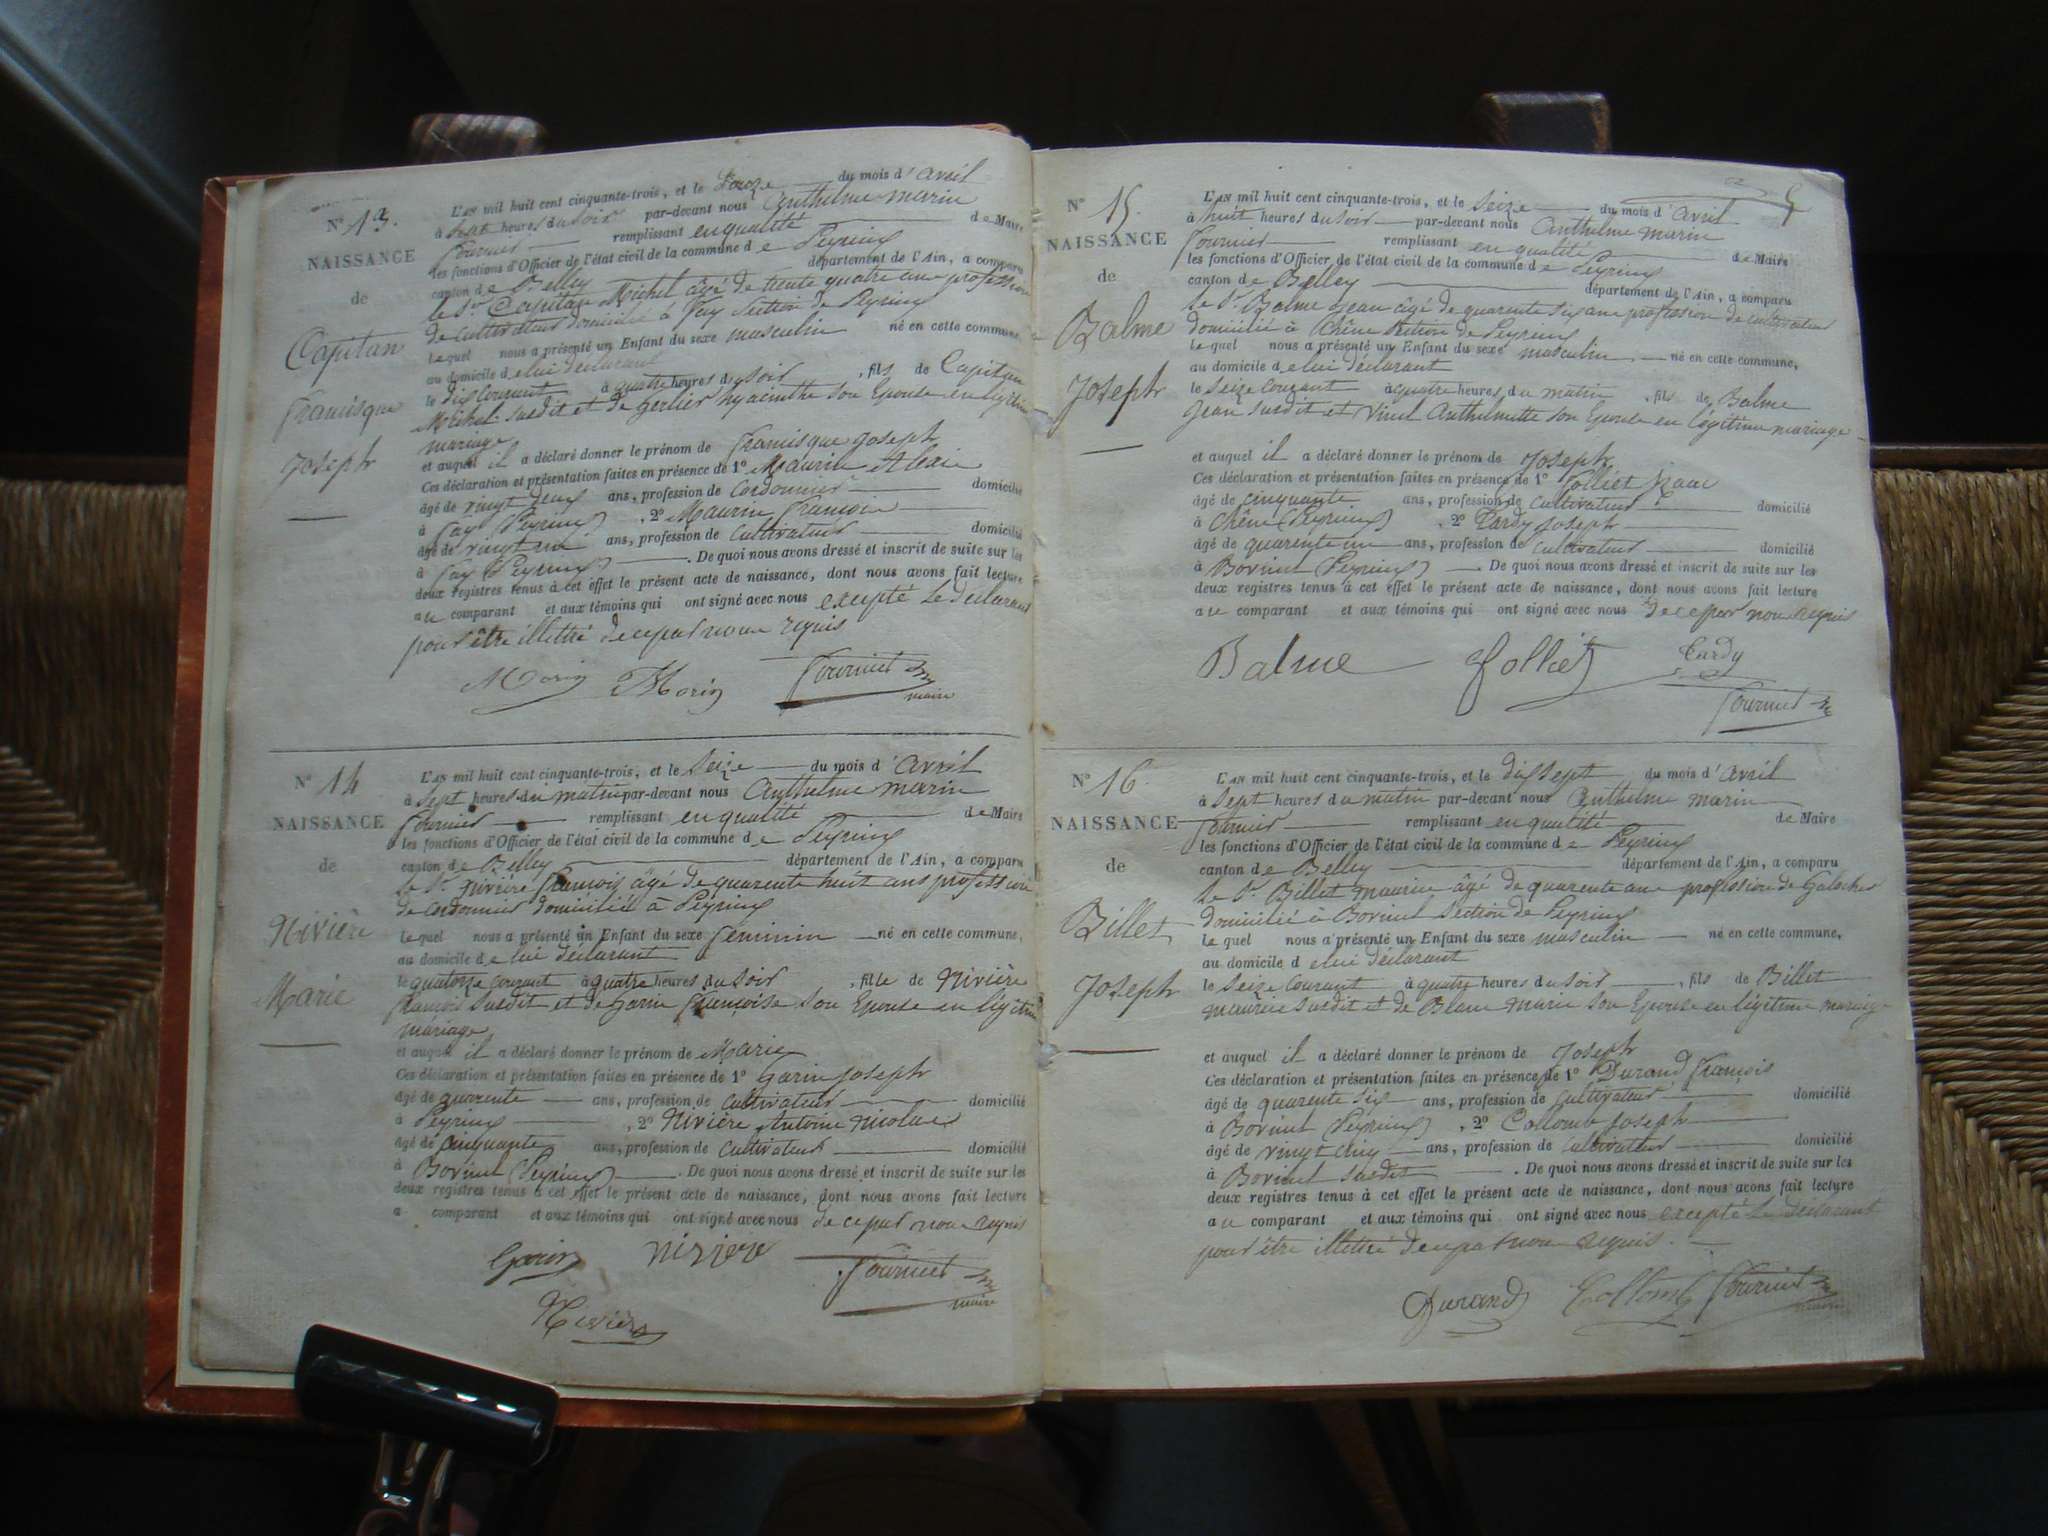 N° 13.
NAISSANCE
de
Capitan
Francisque
Joseph
L'AN mil huit cent cinquante-trois, et le Douze du mois d'avril
à sept heures du soir par-devant nous Anthelme marin
Fournier remplissant en qualité de Maire
les fonctions d'Officier de l'état civil de la commune de Peyrieux
canton de Belley département de l'Ain, a comparu
le Sr. Capitan Michel âgé de trente quatre ans profession
de cultivateur domicilié à Fay Section de Peyrieux
lequel nous a présenté un Enfant du sexe masculin né en cette commune,
au domicile de lui déclarant
le dix courant à quatre heures du soir , fils de Capitan
Michel susdit et de Gerlier hyacinthe son Epouse en légitime
mariage
et auquel il a déclaré donner le prénom de Francisque Joseph
Ces déclaration et présentation faites en présence de 1° Maurin Alexis
âgé de vingt deux ans, profession de Cordonnier domicilié
à Fay (Peyrieux) , 2° Maurin François
âgé de vingt un ans, profession de Cultivateur domicilié
à Fay (Peyrieux) . De quoi nous avons dressé et inscrit de suite sur les
deux registres tenus à cet effet le présent acte de naissance, dont nous avons fait lecture
au comparant et aux témoins qui ont signé avec nous excepté le déclarant
pour être illettré de ce par nous requis
Morin Morin Fournier
maire
N° 14
NAISSANCE
de
Nivière
Marie
L'AN mil huit cent cinquante-trois, et le Seize du mois d'avril
à Sept heures du matin par-devant nous Anthelme marin
Fournier remplissant en qualité de Maire
les fonctions d'Officier de l'état civil de la commune de Peyrieux
canton de Belley département de l'Ain, a comparu
le Sr. Nivière François âgé de quarente huit ans profession
de cordonnier domicilié à Peyrieux
lequel nous a présenté un Enfant du sexe féminin né en cette commune,
au domicile de lui déclarant
le quatorze courant à quatre heures du soir , fille de Nivière
françois susdit et de Garin françoise son Epouse en légitime
mariage
et auquel il a déclaré donner le prénom de Marie
Ces déclaration et présentation faites en présence de 1° Garin Joseph
âgé de quarente ans, profession de Cultivateur domicilié
à Peyrieux , 2° Nivière Antoine Nicolas
âgé de cinquante ans, profession de Cultivateur domicilié
à Borinet (Peyrieux) . De quoi nous avons dressé et inscrit de suite sur les
deux registres tenus à cet effet le présent acte de naissance, dont nous avons fait lecture
a comparant et aux témoins qui ont signé avec nous de ce par nous requis
Garin nivière Fournier
maire
Nivière
5
N° 15.
NAISSANCE
de
Balme
Joseph
L'AN mil huit cent cinquante-trois, et le Seize du mois d'avril
à huit heures du soir par-devant nous Anthelme marin
Fournier remplissant en qualité de Maire
les fonctions d'Officier de l'état civil de la commune de Peyrieux
canton de Belley département de l'Ain, a comparu
le Sr. Balme Jean âgé de quarente six ans profession de cultivateur
domicilié à Chêne Section de Peyrieux
lequel nous a présenté un Enfant du sexe masculin né en cette commune,
au domicile de lui déclarant
le Seize courant à quatre heures du matin , fils de Balme
Jean susdit et Anthelmette son Epouse en légitime mariage
et auquel il a déclaré donner le prénom de Joseph
Ces déclaration et présentation faites en présence de 1° Folliet Isaac
âgé de cinquante ans, profession de Cultivateur domicilié
à Chêne (Peyrieux) , 2° Tardy Joseph
âgé de quarente un ans, profession de Cultivateur domicilié
à Borinet (Peyrieux) . De quoi nous avons dressé et inscrit de suite sur les
deux registres tenus à cet effet le présent acte de naissance, dont nous avons fait lecture
au comparant et aux témoins qui ont signé avec nous de ce par nous requis
Balme Folliet Tardy
Fournier
N° 16.
NAISSANCE
de
Billet
Joseph
L'AN mil huit cent cinquante-trois, et le dix Sept du mois d'avril
à Sept heures du matin par-devant nous Anthelme marin
Fournier remplissant en qualité de Maire
les fonctions d'Officier de l'état civil de la commune de Peyrieux
canton de Belley département de l'Ain, a comparu
le Sr. Billet maurice âgé de quarente ans profession de Galocher
domicilié à Borinet Section de Peyrieux
lequel nous a présenté un Enfant du sexe masculin né en cette commune,
au domicile de lui déclarant
le Seize courant à quatre heures du soir , fils de Billet
maurice susdit et de Blanc marie son Epouse en légitime mariage
et auquel il a déclaré donner le prénom de Joseph
Ces déclaration et présentation faites en présence de 1° Durand François
âgé de quarente six ans, profession de Cultivateur domicilié
à Borinet (Peyrieux) , 2° Collomb Joseph
âgé de vingt cinq ans, profession de Cultivateur domicilié
à Borinet susdit . De quoi nous avons dressé et inscrit de suite sur les
deux registres tenus à cet effet le présent acte de naissance, dont nous avons fait lecture
au comparant et aux témoins qui ont signé avec nous excepté le déclarant
pour être illettré de ce par nous requis.
Durand Collomb Fournier
maire